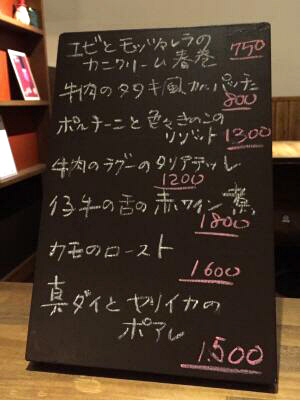 エビとモッツァレラの
カニクリーム春巻 750
牛肉のタタキ風カルパッチョ
800
ポルチーニと色々きのこの
リゾット 1300
牛肉のラグーのタリアテッレ
1200
仔牛の舌の赤ワイン煮
1800
カモのロースト
1600
真ダイとヤリイカの
ポアレ
1.500